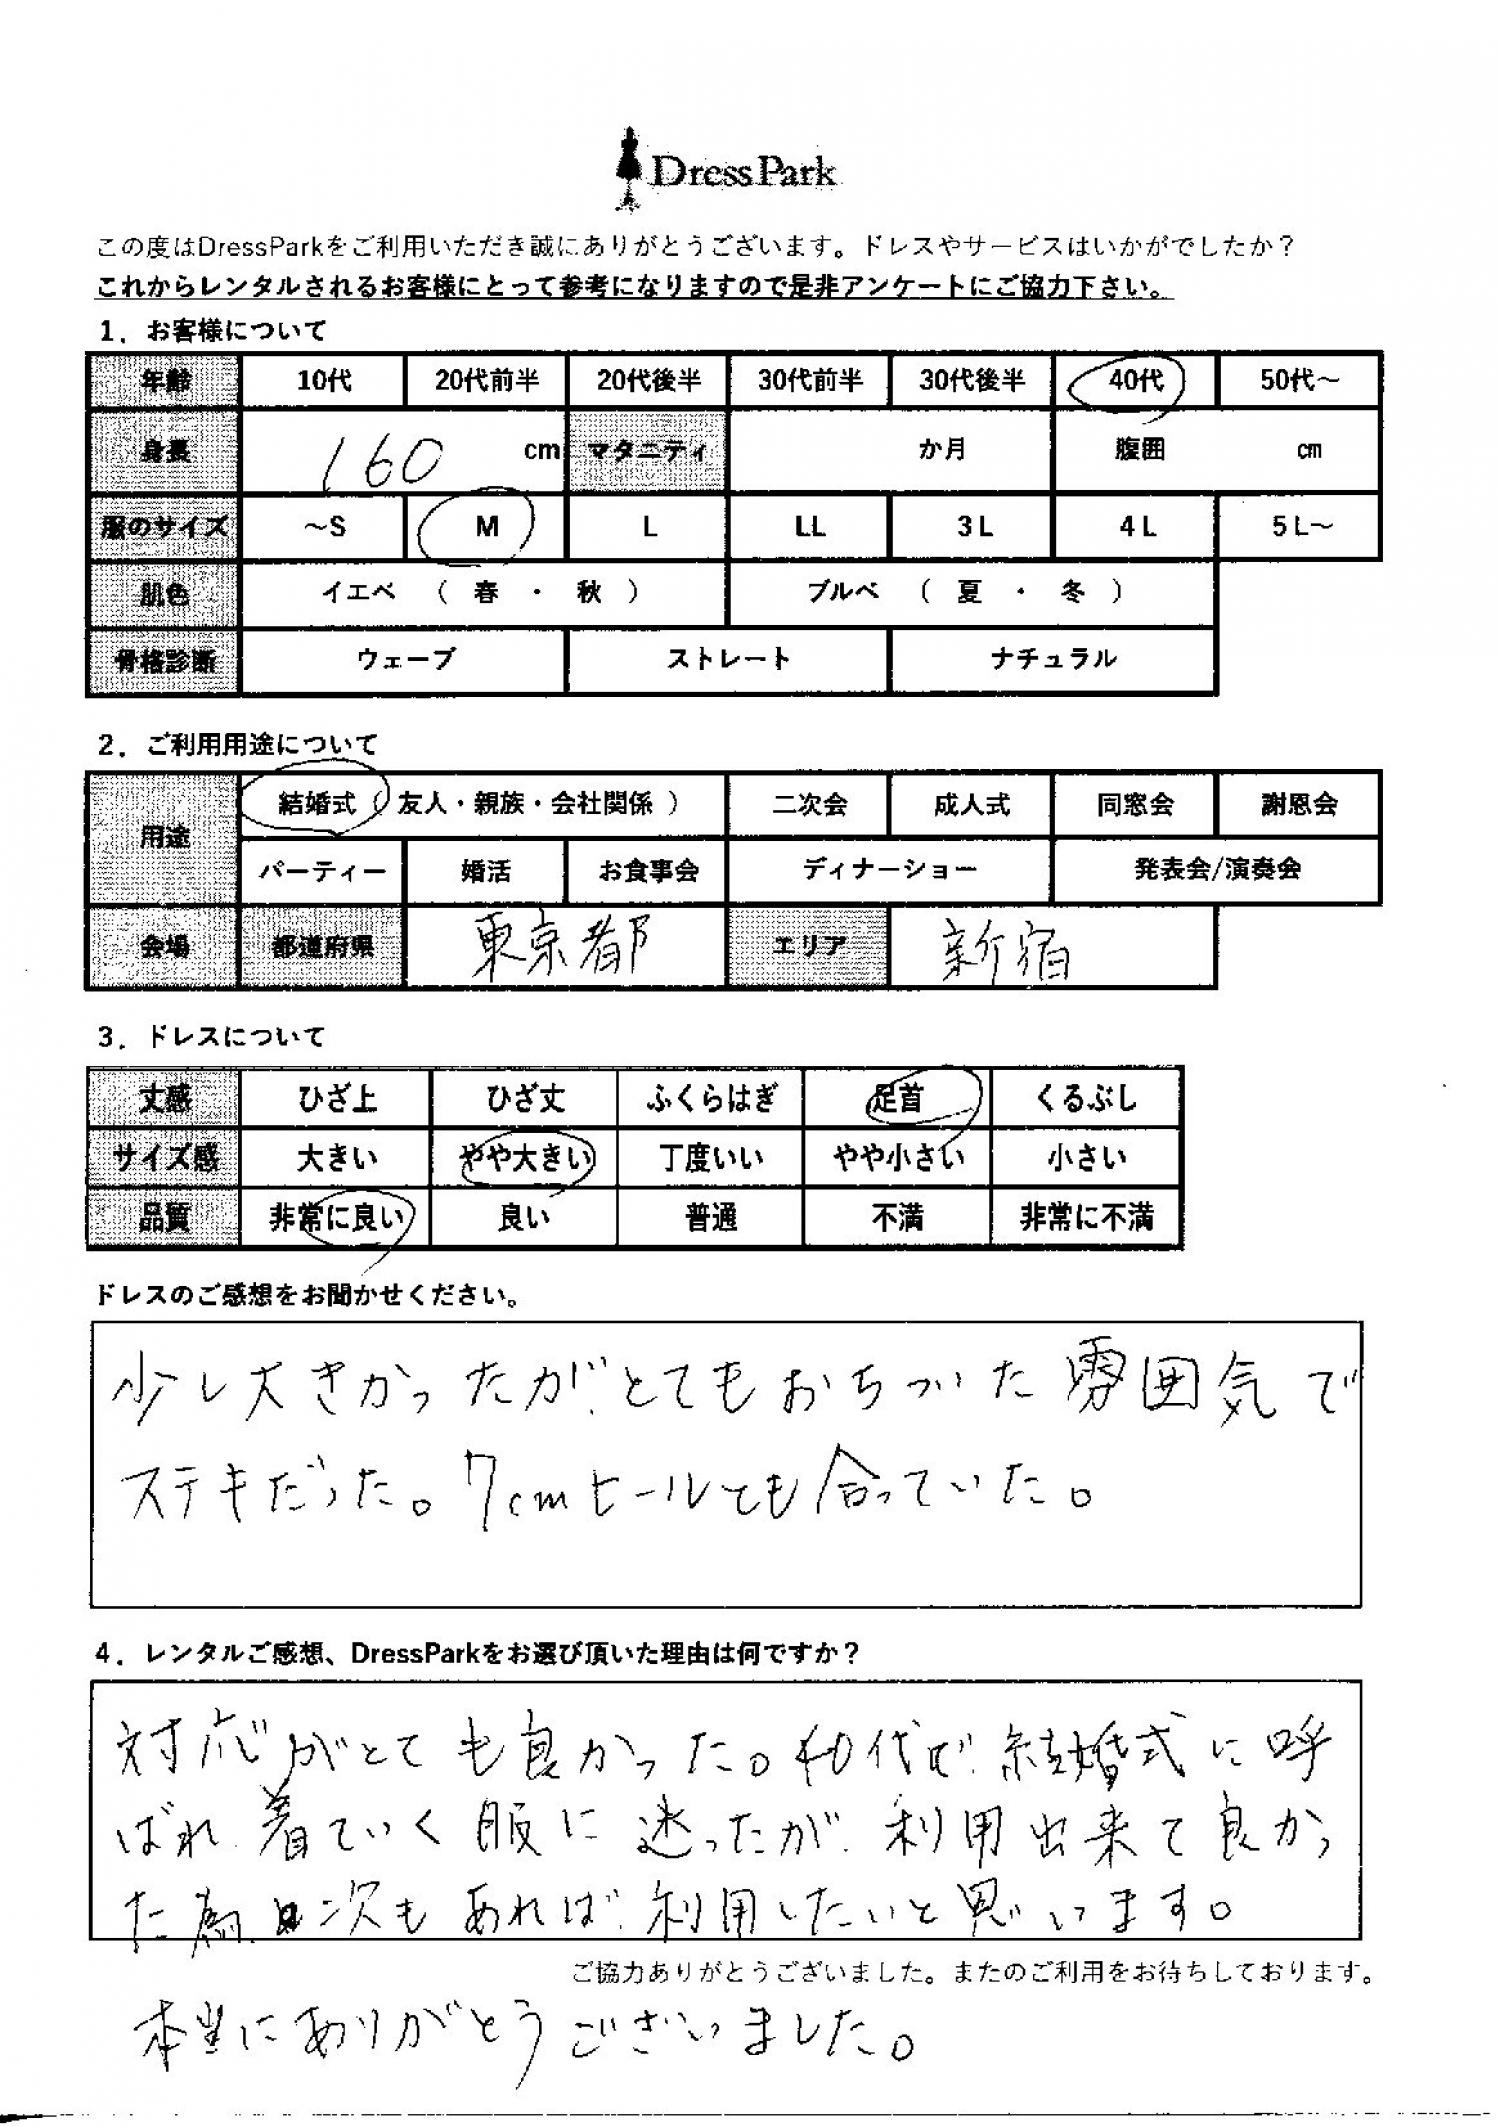 DressPark
この度はDressParkをご利用いただき誠にありがとうございます。ドレスやサービスはいかがでしたか？
これからレンタルされるお客様にとって参考になりますので是非アンケートにご協力下さい。
1．お客様について
年齢 10代 20代前半 20代後半 30代前半 30代後半 40代 50代～
身長 160 cm マタニティ か月 腹囲 cm
服のサイズ ～S M L LL 3L 4L 5L～
肌色 イエベ （ 春 ・ 秋 ） ブルベ （ 夏 ・ 冬 ）
骨格診断 ウェーブ ストレート ナチュラル
2．ご利用用途について
用途 結婚式（ 友人・親族・会社関係 ） 二次会 成人式 同窓会 謝恩会
パーティー 婚活 お食事会 ディナーショー 発表会/演奏会
会場 都道府県 東京都 エリア 新宿
3．ドレスについて
丈感 ひざ上 ひざ丈 ふくらはぎ 足首 くるぶし
サイズ感 大きい やや大きい 丁度いい やや小さい 小さい
品質 非常に良い 良い 普通 不満 非常に不満
ドレスのご感想をお聞かせください。
少し大きかったが、とてもおちついた雰囲気で
ステキだった。7cmヒールとも合っていた。
4．レンタルご感想、DressParkをお選び頂いた理由は何ですか？
対応がとても良かった。40代で、結婚式に呼
ばれ、着ていく服に迷ったが、利用出来て良かっ
た為、次もあれば、利用したいと思います。
ご協力ありがとうございました。またのご利用をお待ちしております。
本当にありがとうございました。